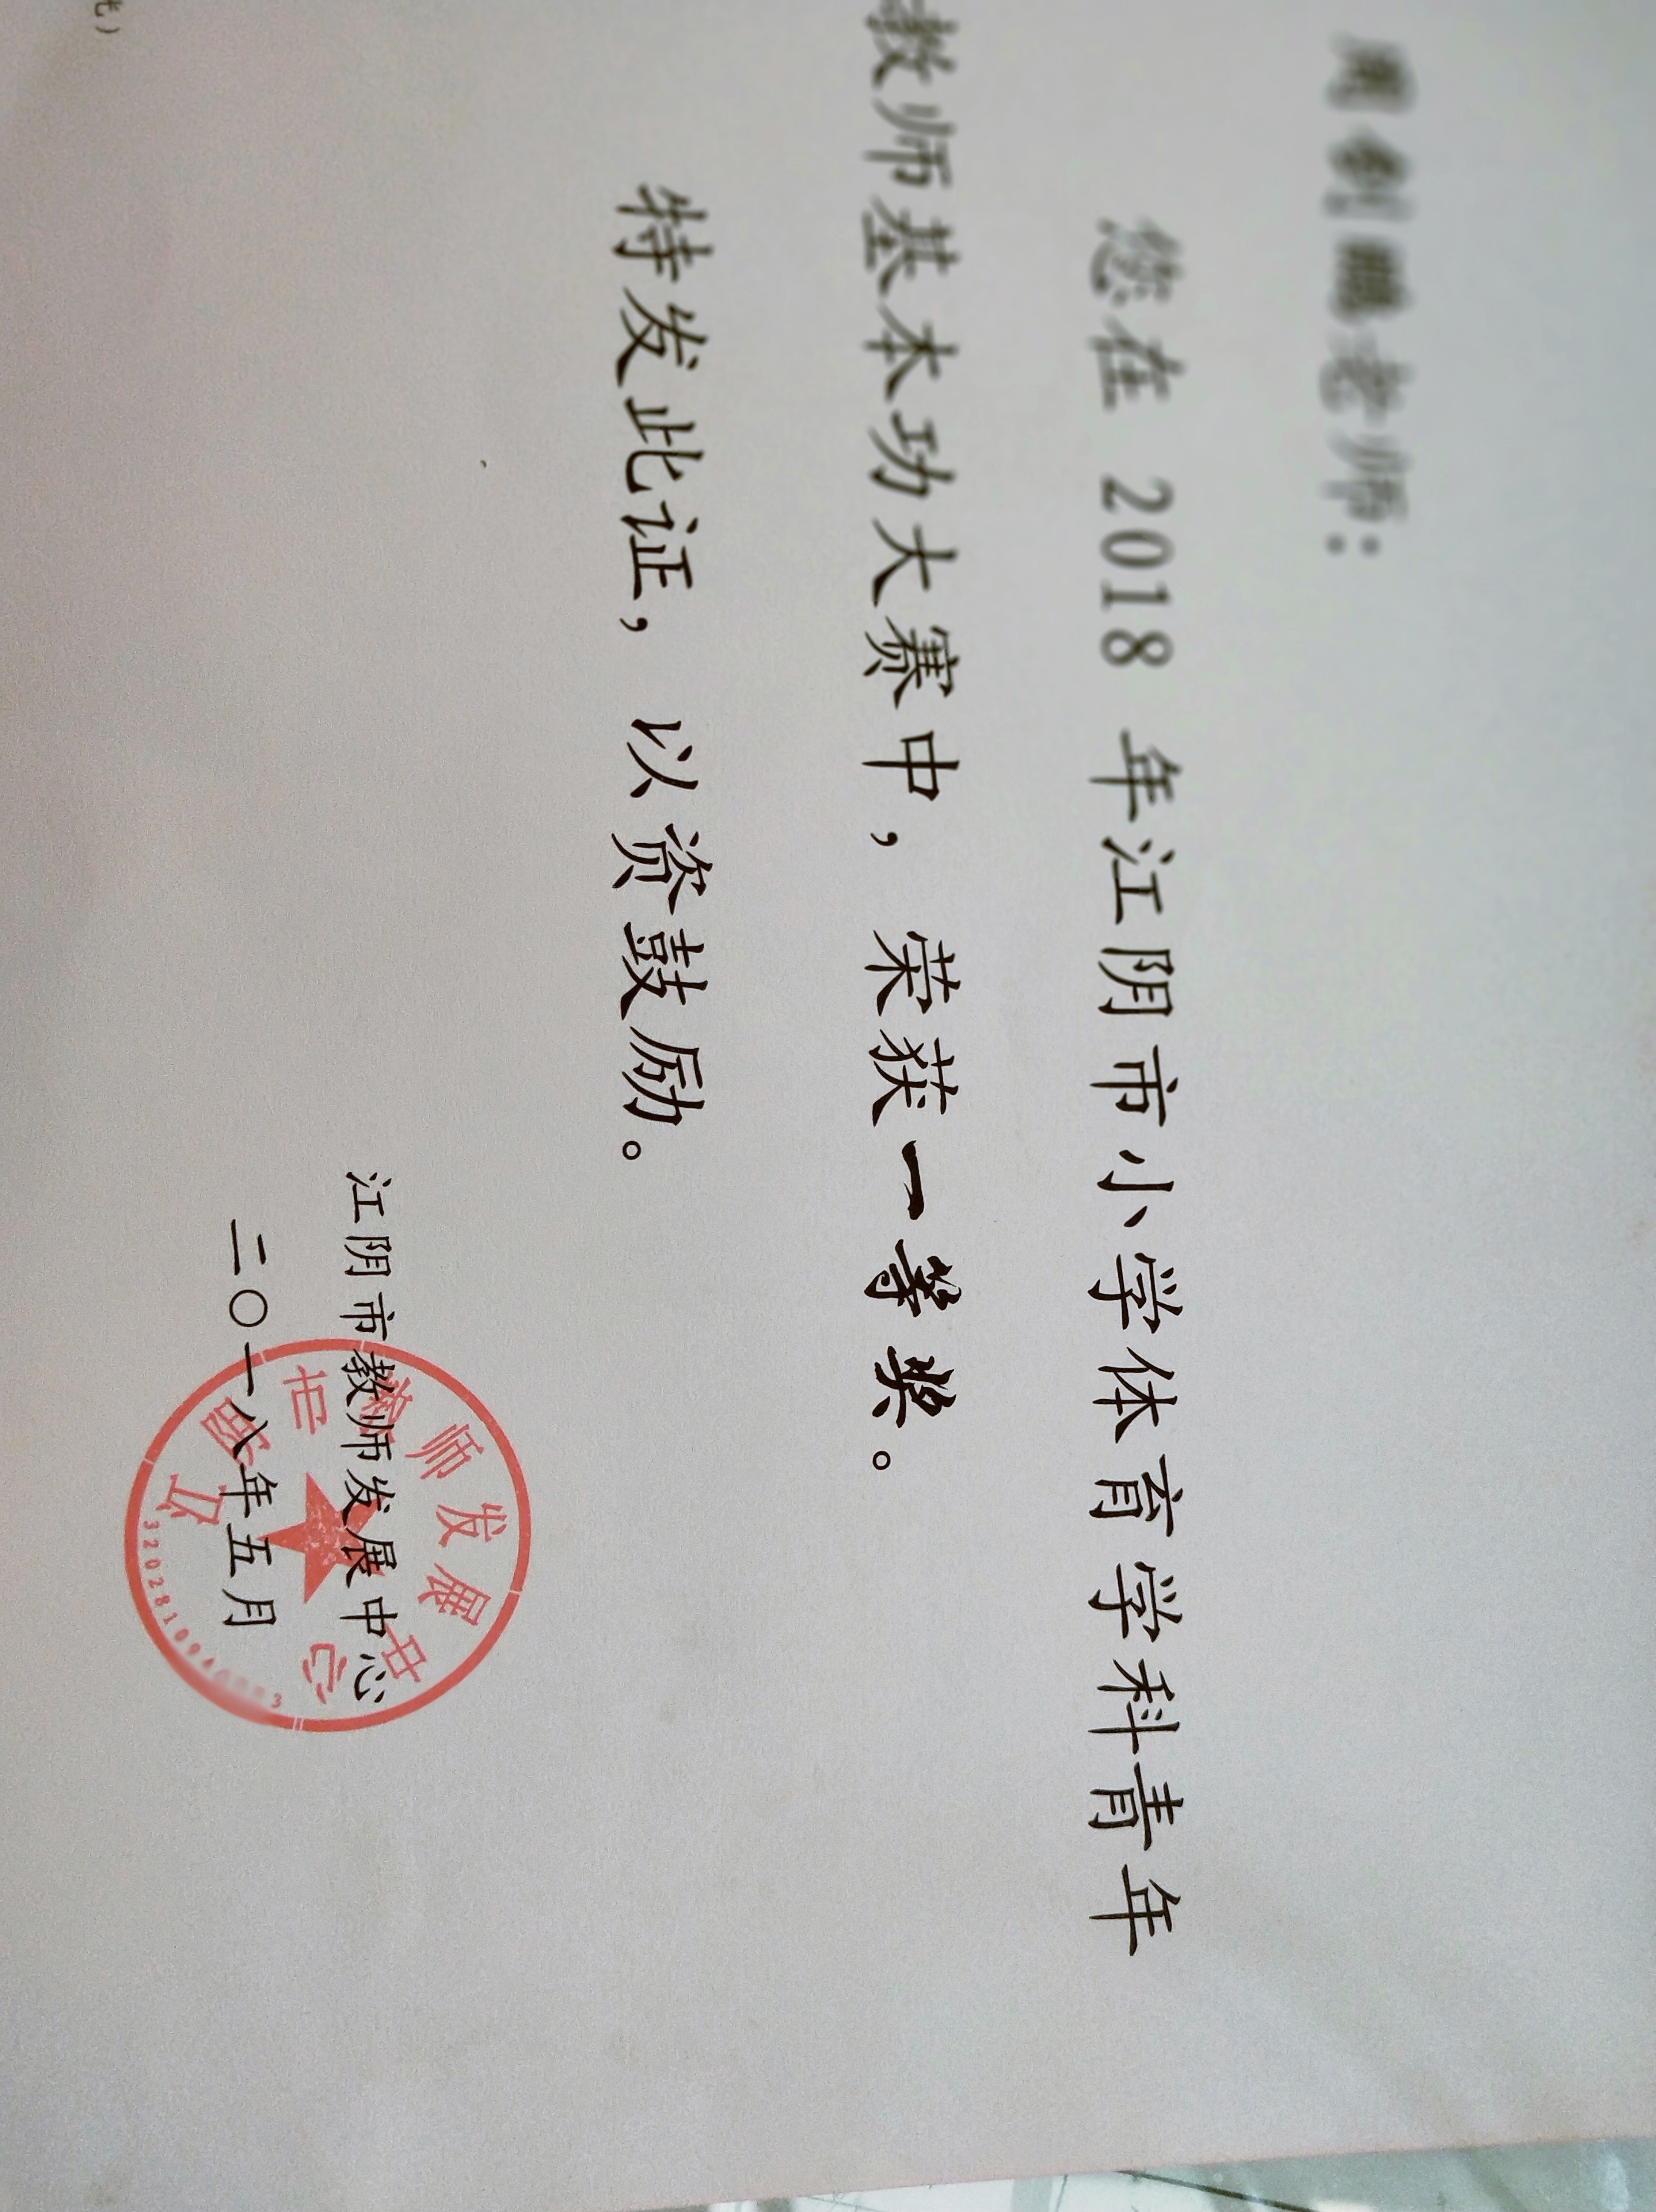 老师：
您在 2018 年江阴市小学体育学科青年
教师基本功大赛中，荣获一等奖。
特发此证，以资鼓励。
江阴市教师发展中心
二〇一八年五月
江阴市教师发展中心